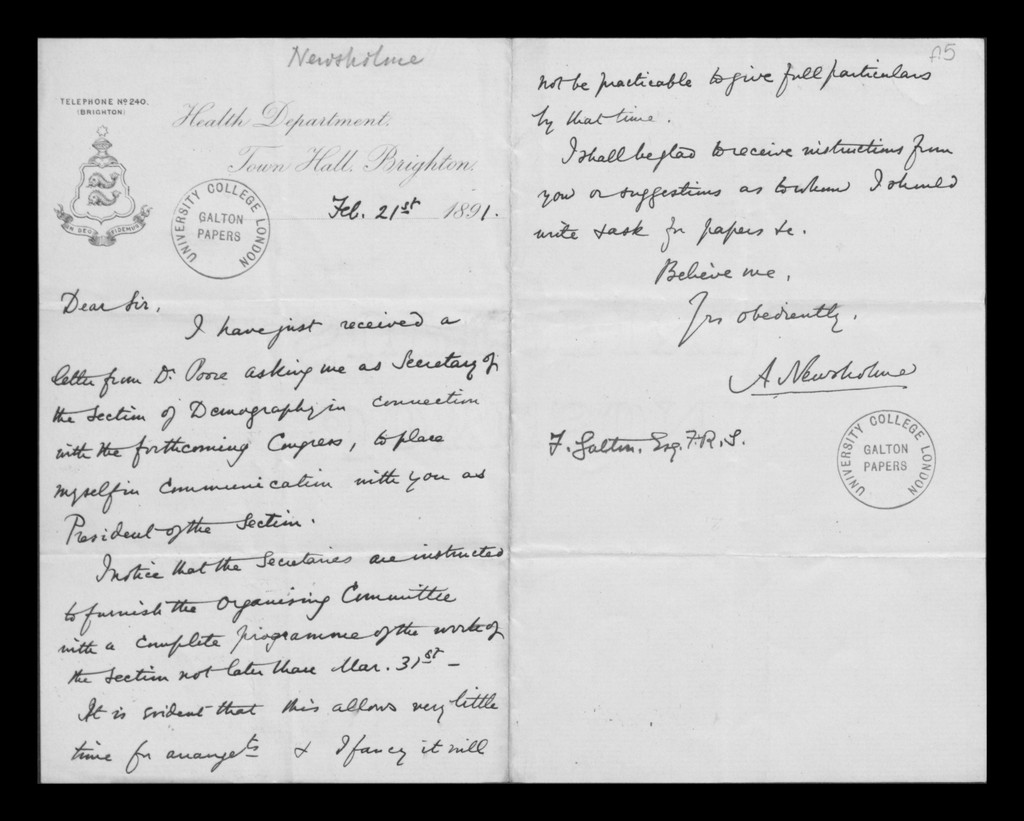 Newsholme
TELEPHONE Nº 240.
(BRIGHTON)
Health Department,
Town Hall, Brighton,
Feb. 21st 1891.
UNIVERSITY COLLEGE LONDON
GALTON
PAPERS
IN DEO FIDEMUS
Dear Sir,
I have just received a
letter from Dr. Poore asking me as Secretary of
the Section of Demography in connection
with the forthcoming Congress, to place
myself in communication with you as
President of the Section.
I notice that the Secretaries are instructed
to furnish the Organising Committee
with a complete programme of the work of
the Section not later than Mar. 31st –
It is evident that this allows very little
time for arrangets & I fancy it will
A5
not be practicable to give full particulars
by that time.
I shall be glad to receive instructions from
you or suggestions as to whom I should
write & ask for papers &c.
Believe me,
Yrs obediently,
A Newsholme
F. Galton, Esq. F.R.S.
UNIVERSITY COLLEGE LONDON
GALTON
PAPERS